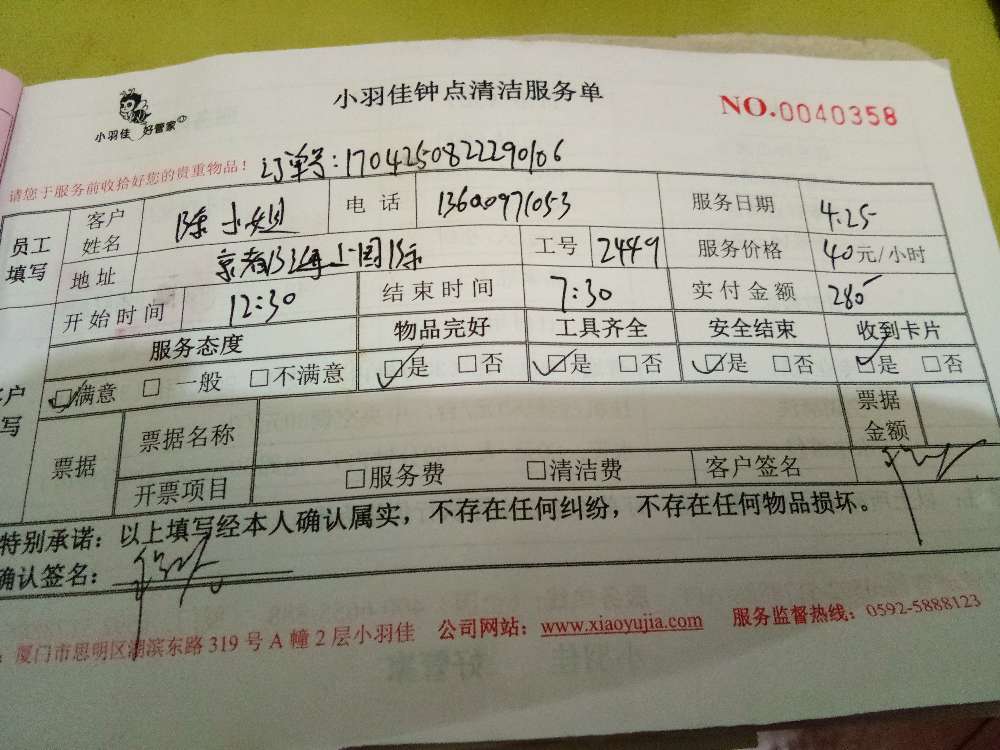 小羽佳 好管家
小羽佳钟点清洁服务单
NO.0040358
请您于服务前收拾好您的贵重物品！
订单号:1704250822290106
员工填写 客户姓名 陈小姐 电话 13600971053 服务日期 4.25
地址 工号 2449 服务价格 40元/小时
开始时间 12:30 结束时间 7:30 实付金额 280
服务态度 物品完好 工具齐全 安全结束 收到卡片
□满意 □一般 □不满意 □是 □否 □是 □否 □是 □否 □是 □否
票据 票据名称 票据金额
开票项目 □服务费 □清洁费 客户签名
特别承诺：以上填写经本人确认属实，不存在任何纠纷，不存在任何物品损坏。
确认签名：
厦门市思明区湖滨东路319号A幢2层小羽佳 公司网站：www.xiaoyujia.com 服务监督热线：0592-5888123